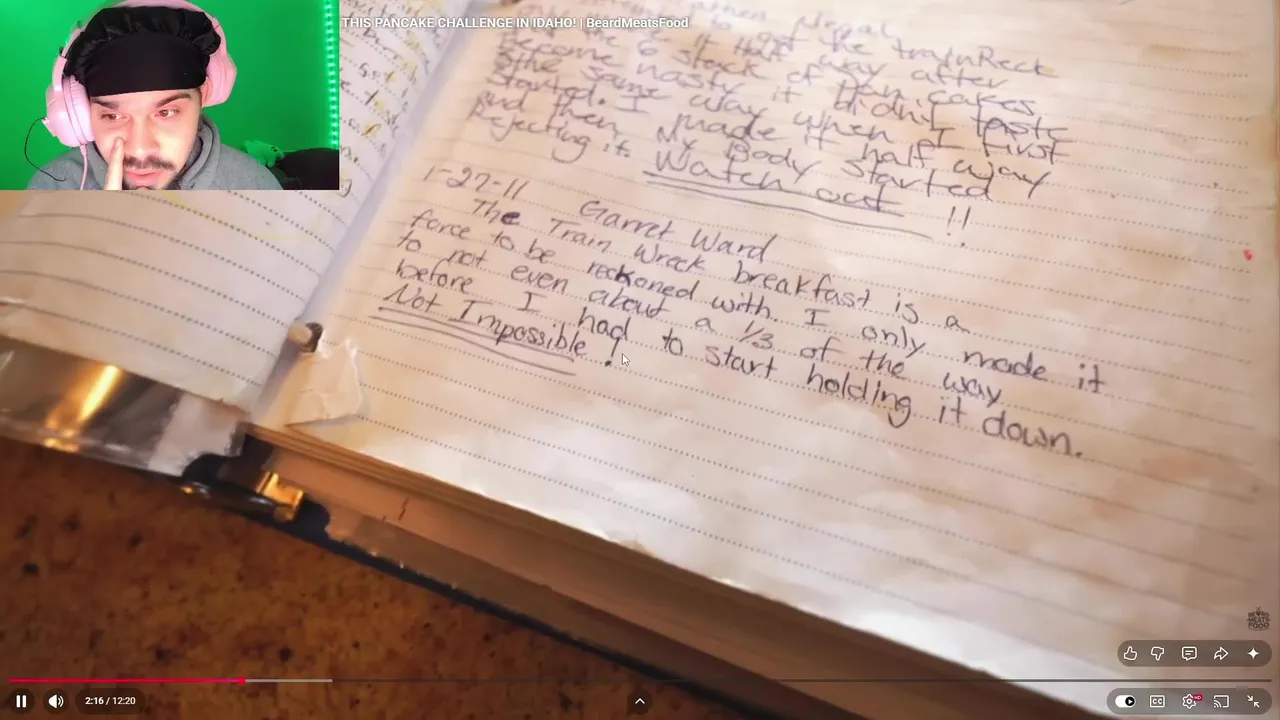 THIS PANCAKE CHALLENGE IN IDAHO! | BeardMeatsFood
the trainReck
it Half way after
the 6 stack of Pan cakes
become nasty it didnt taste
the same way when I first
started. I made it half way
and then My Body started
Rejecting it. Watch out !!
1-27-11 Garret Ward
The Train Wreck breakfast is a
force to be reckoned with. I only made it
to not even about a 1/3 of the way
before I had to start holding it down.
Not Impossible!
BEARD MEATS FOOD
2:16 / 12:20
CC
HD